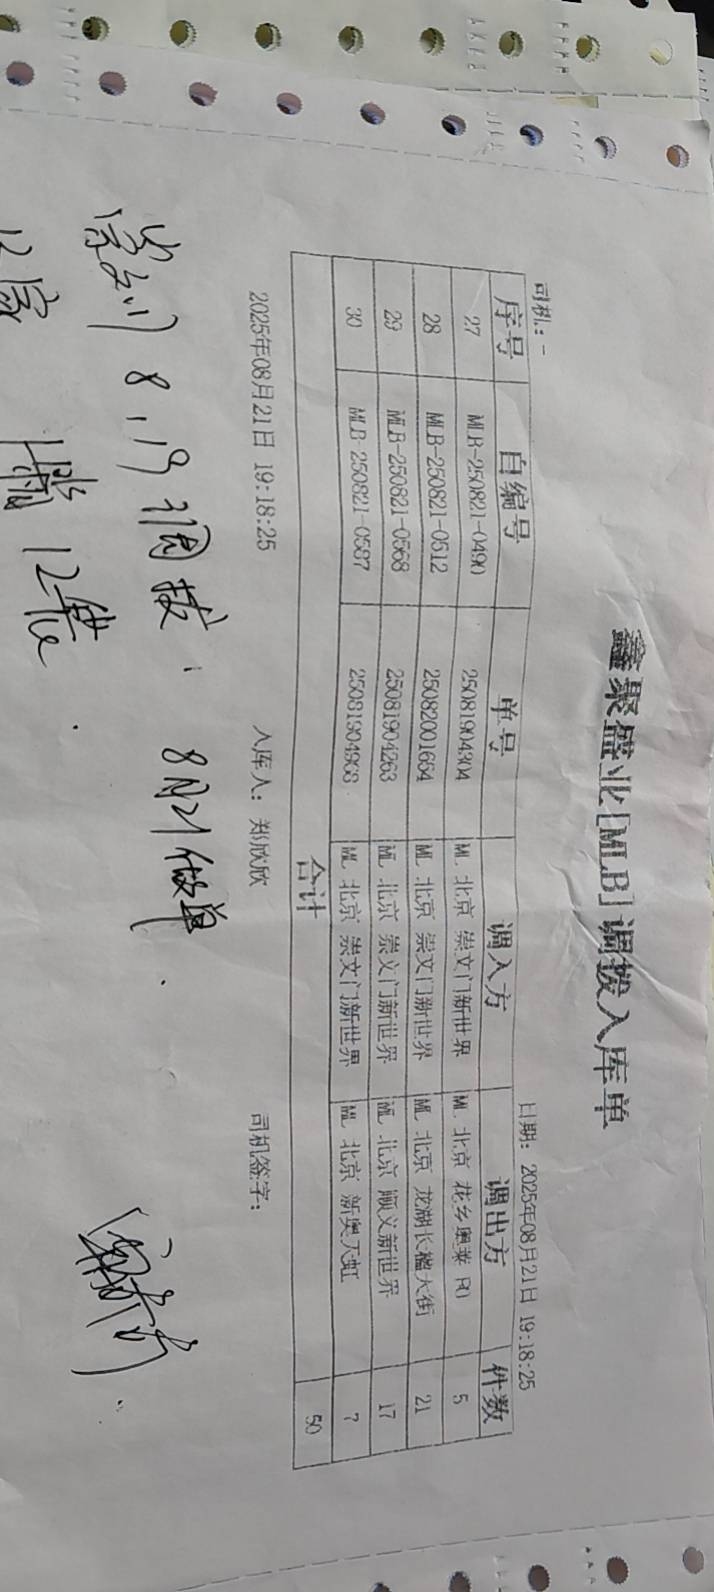 鑫聚盛业[MLB]调拨入库单
司机: - 日期: 2025年08月21日 19:18:25
序号 自编号 单号 调入方 调出方 件数
27 MLB-250821-0490 25081904304 ML 北京 崇文门新世界 ML 北京 花乡奥莱 FO 5
28 MLB-250821-0512 25082001664 ML 北京 崇文门新世界 ML 北京 龙湖长楹天街 21
29 MLB-250821-0568 25081904263 ML 北京 崇文门新世界 ML 北京 顺义新世界 17
30 MLB-250821-0587 25081904968 ML 北京 崇文门新世界 ML 北京 新奥天虹 7
合计 50
2025年08月21日 19:18:25 入库人: 郑欣欣 司机签字:
崇文门 8.19 调拨, 8月21做单.
12家 12集